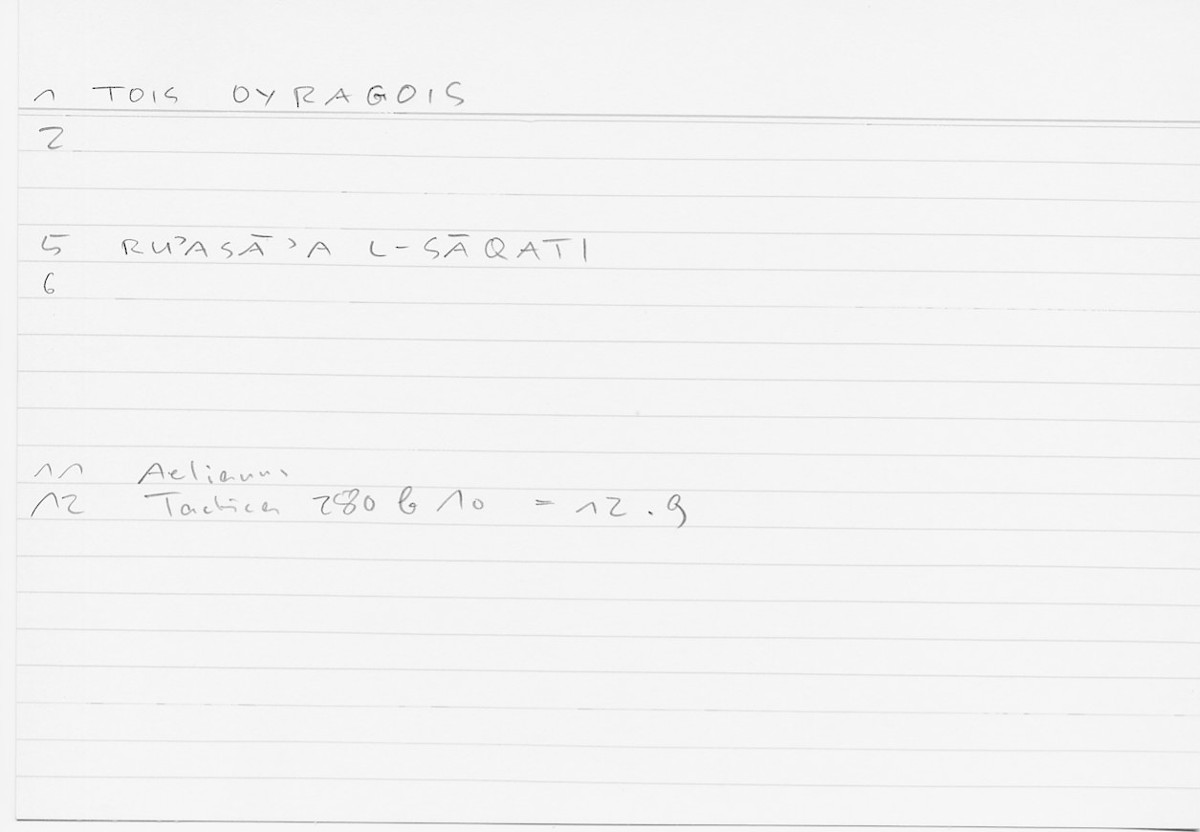 1 TOIS OYRAGOIS
2
5 RU'ASĀ'A L-SĀQATI
6
11 Aelianus
12 Tactica 280 b 10 = 12.9